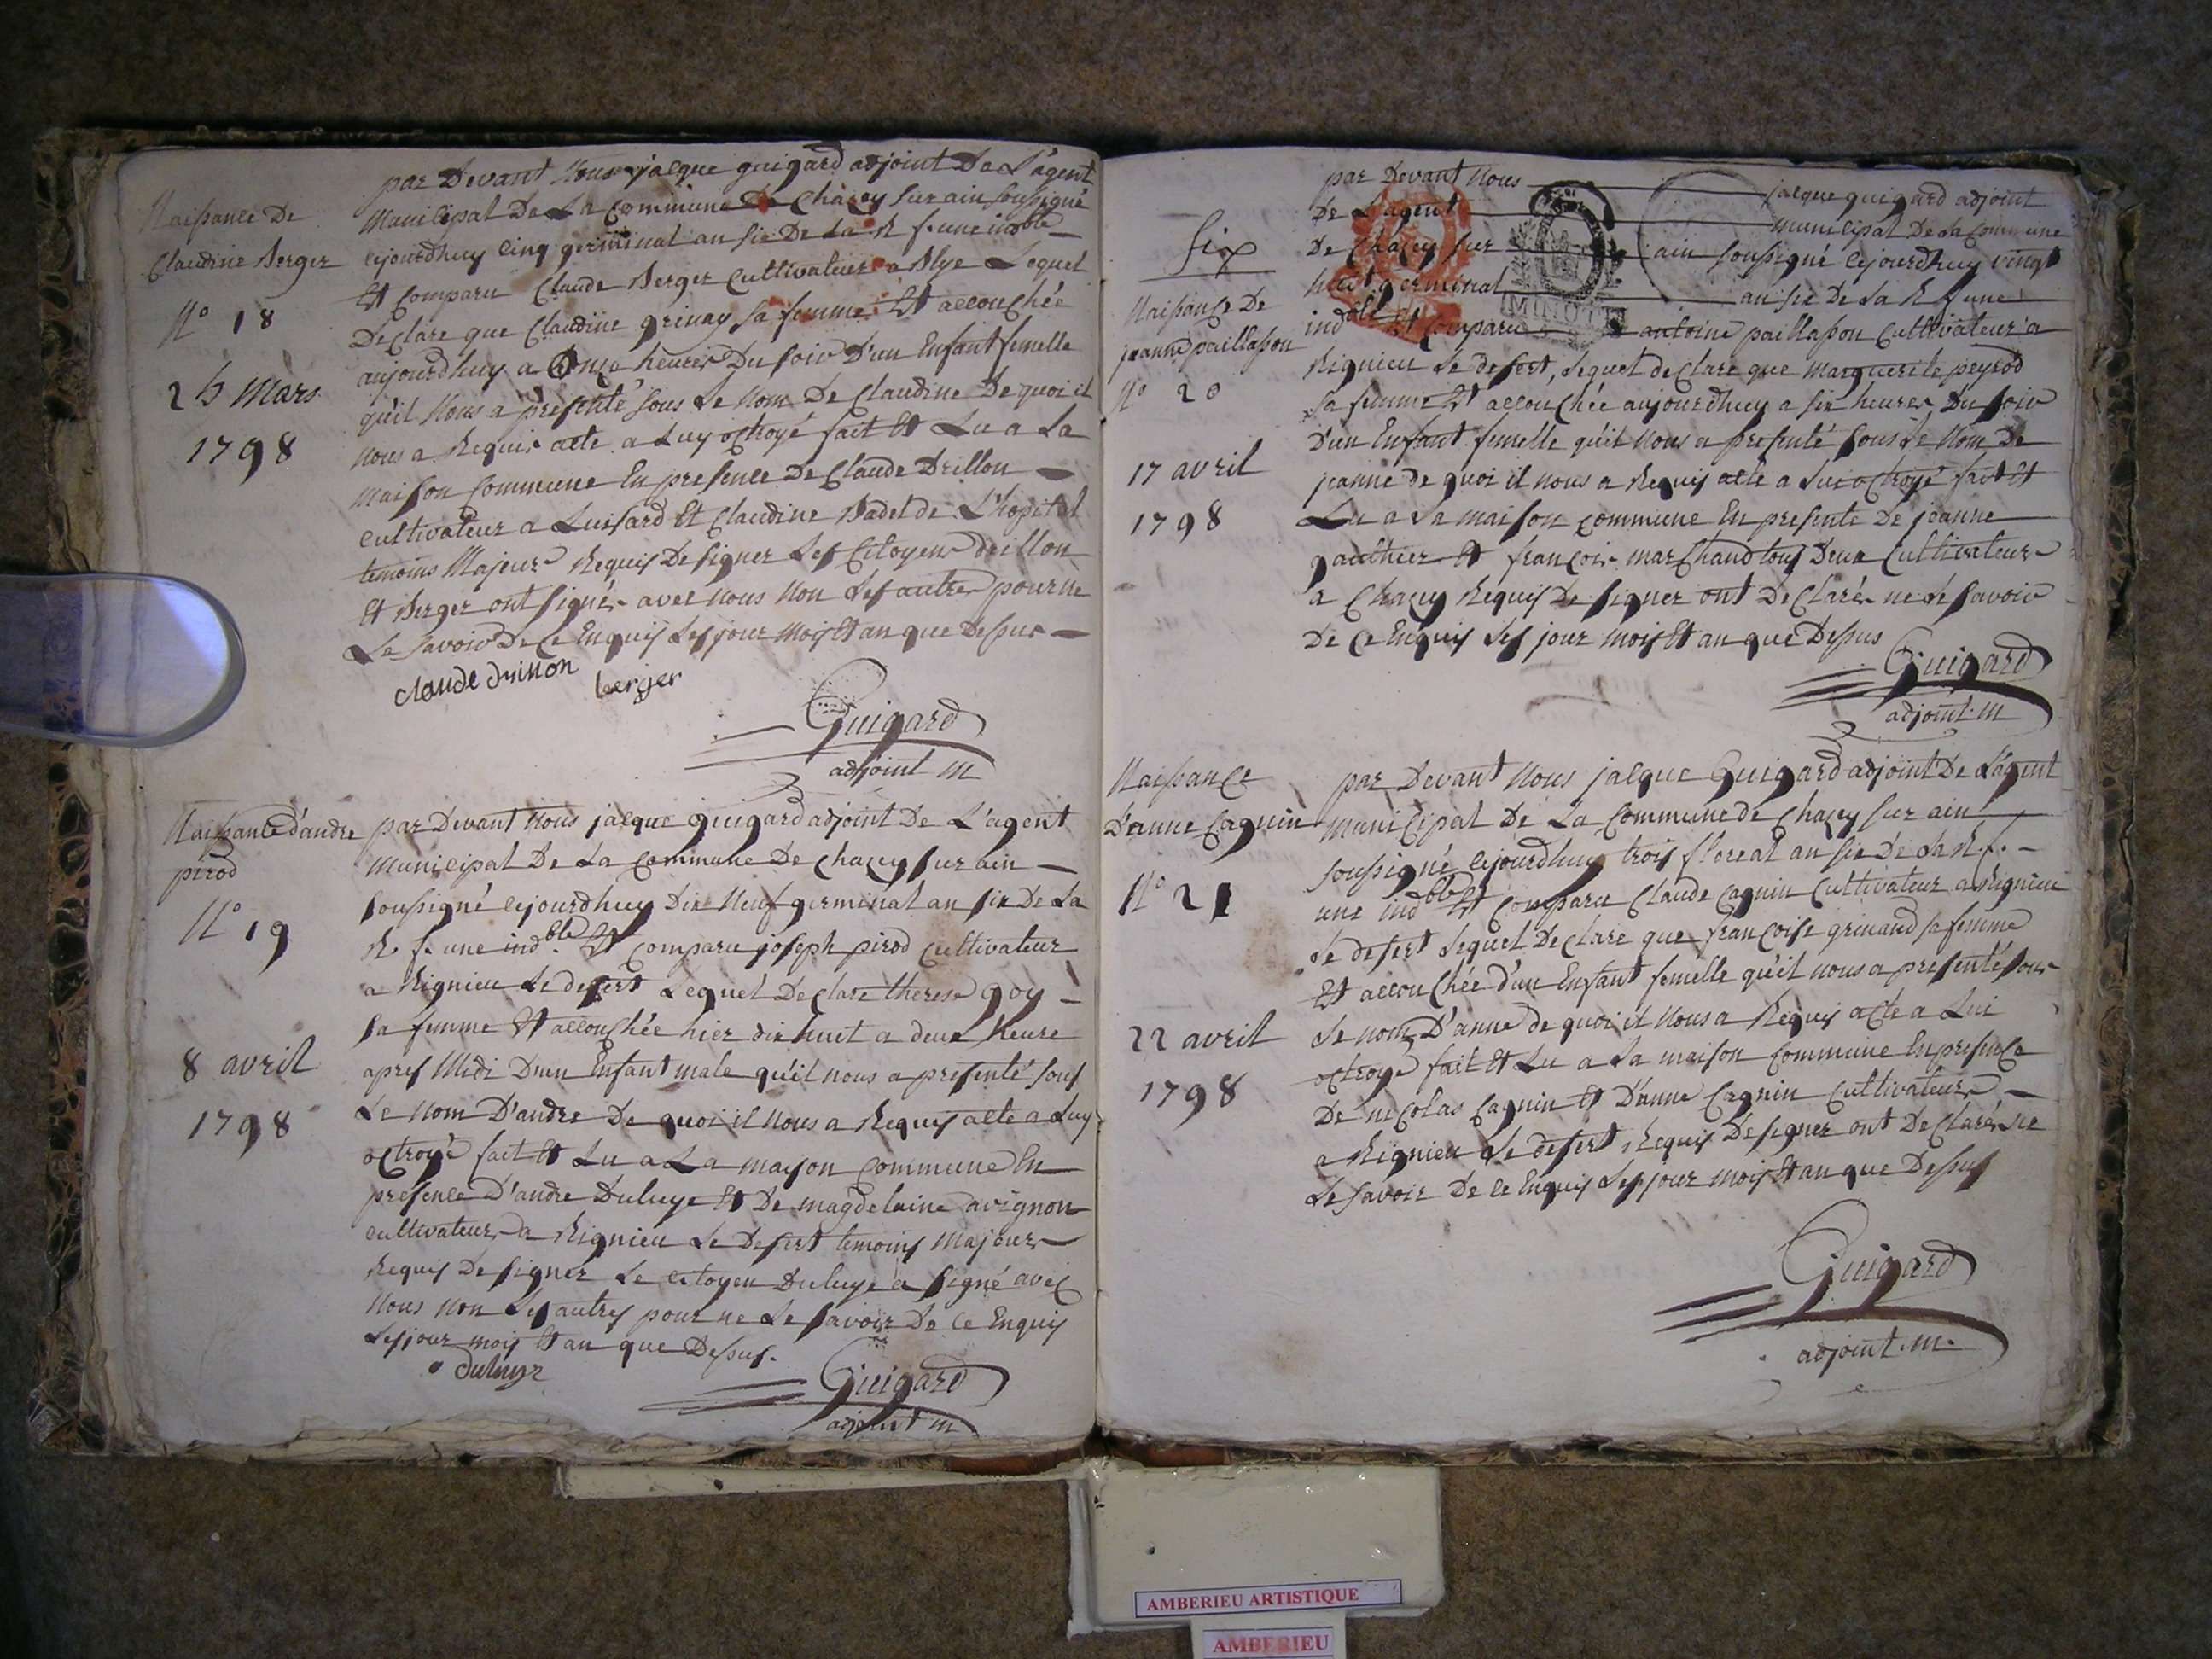 Naissance De
Claudine Berger
N° 18
25 Mars
1798
par Devant Nous jacque guigard adjoint De L'agent
Municipal De La Commune De Chazey sur ain soussigné
cejourdhuy cinq germinal an six De La R f. une indble
Et Comparu Claude Berger Cultivateur a Blye Lequel
Declare que Claudine grinay sa femme Et accouchée
aujourdhuy a Onze heures Du soir D'un Enfant femelle
qu'il Nous a presenté sous Le Nom De Claudine De quoi il
nous a Requis acte a Luy octroyé fait Et Lu a La
maison Commune En presence De Claude Drillon
cultivateur a Luisard Et Claudine Badel de L'hopital
temoins Majeurs Requis De signer Les Citoyens drillon
Et Berger ont signés avec nous Non Les autres pour ne
Le savoir De Ce Enquis Les jour Mois Et an que Dessus
claude drillon berger
Guigard
adjoint m
Naissance d'andre
pirod
N° 19
8 avril
1798
par Devant Nous jacque guigard adjoint De L'agent
Municipal De La Commune De Chazey sur ain
soussigné cejourdhuy Dix Neuf germinal an six De La
R f. une indble Et Comparu joseph pirod Cultivateur
a Rignieu Le desert Lequel Declare therese goy
sa femme Et accouchée hier dix huit a deux heure
apres Midi D'un Enfant male qu'il nous a presenté sous
Le Nom D'andre De quoi il Nous a Requis acte a Luy
octroyé fait Et Lu a La maison Commune En
presence D'andre Duluye Et De magdelaine avignon
cultivateurs a Rignieu Le Desert temoins Majeurs
Requis De signer Le citoyen Duluye a signé avec
Nous non Les autres pour ne Le savoir De Ce Enquis
Les jour mois Et an que Dessus.
duluye
Guigard
adjoint m
six
Naissance De
jeanne paillasson
N° 20
17 avril
1798
par Devant Nous jacque guigard adjoint
De L'agent Municipal De La Commune
De Chazey sur ain soussigné cejourdhuy vingt
huit germinal an six De La R f une
indble Et Comparu antoine paillasson Cultivateur a
Rignieu Le desert, Lequel declare que marguerite peyrod
sa femme Et accouchée aujourdhuy a six heures Du soir
D'un Enfant femelle qu'il nous a presenté sous Le Nom De
jeanne de quoi il nous a Requis acte a Lui octroyé fait Et
Lu a La maison commune En presente De jeanne
gauthier Et françois marchand tous Deux Cultivateurs
a Chazey Requis De signer ont Declarés ne Le savoir
De Ce Enquis Les jour mois Et an que Dessus
Guigard
adjoint. m
Naissance
D'anne Cagnin
N° 21
22 avril
1798
par Devant Nous jacque Guigard adjoint De L'agent
Municipal De La Commune de Chazey sur ain
soussigné cejourdhuy trois floreal an six De La R. f.
une indble Et Comparu Claude Cagnin Cultivateur a Rignieu
Le desert Lequel Declare que françoise grinand sa femme
Et accouchée d'un Enfant femelle qu'il nous a presenté sous
Le nom D'anne de quoi il Nous a Requis acte a Lui
octroyé fait Et Lu a La maison Commune En presence
De nicolas Cagnin Et D'anne Cagnin Cultivateurs
a Rignieu Le desert, Requis De signer ont Declarés ne
Le savoir De Ce Enquis Les jour mois Et an que Dessus
Guigard
adjoint. m.
AMBERIEU ARTISTIQUE
AMBERIEU